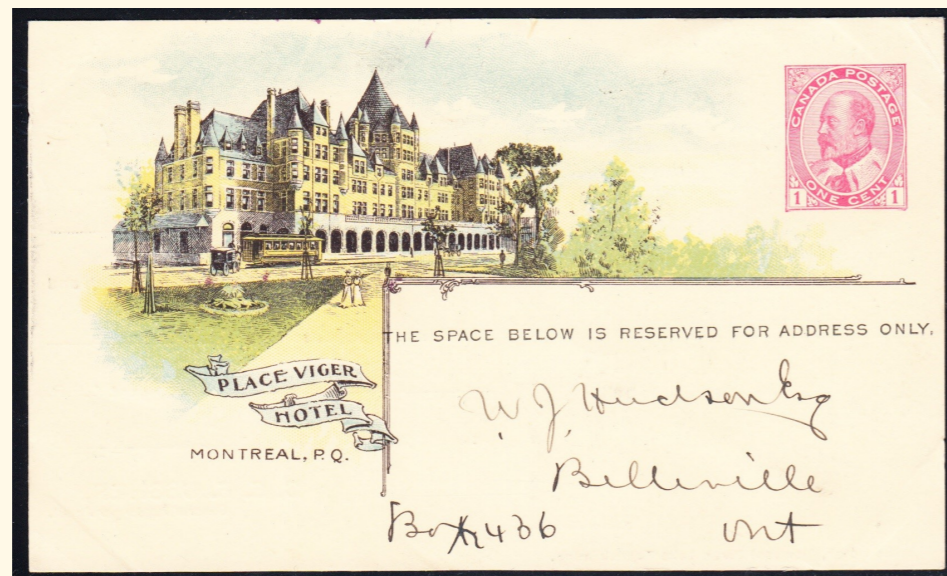 CANADA POSTAGE
1 ONE CENT 1
THE SPACE BELOW IS RESERVED FOR ADDRESS ONLY.
PLACE VIGER
HOTEL
MONTREAL, P.Q.
W. J. Hudson Esq
Belleville
Box 436 Ont